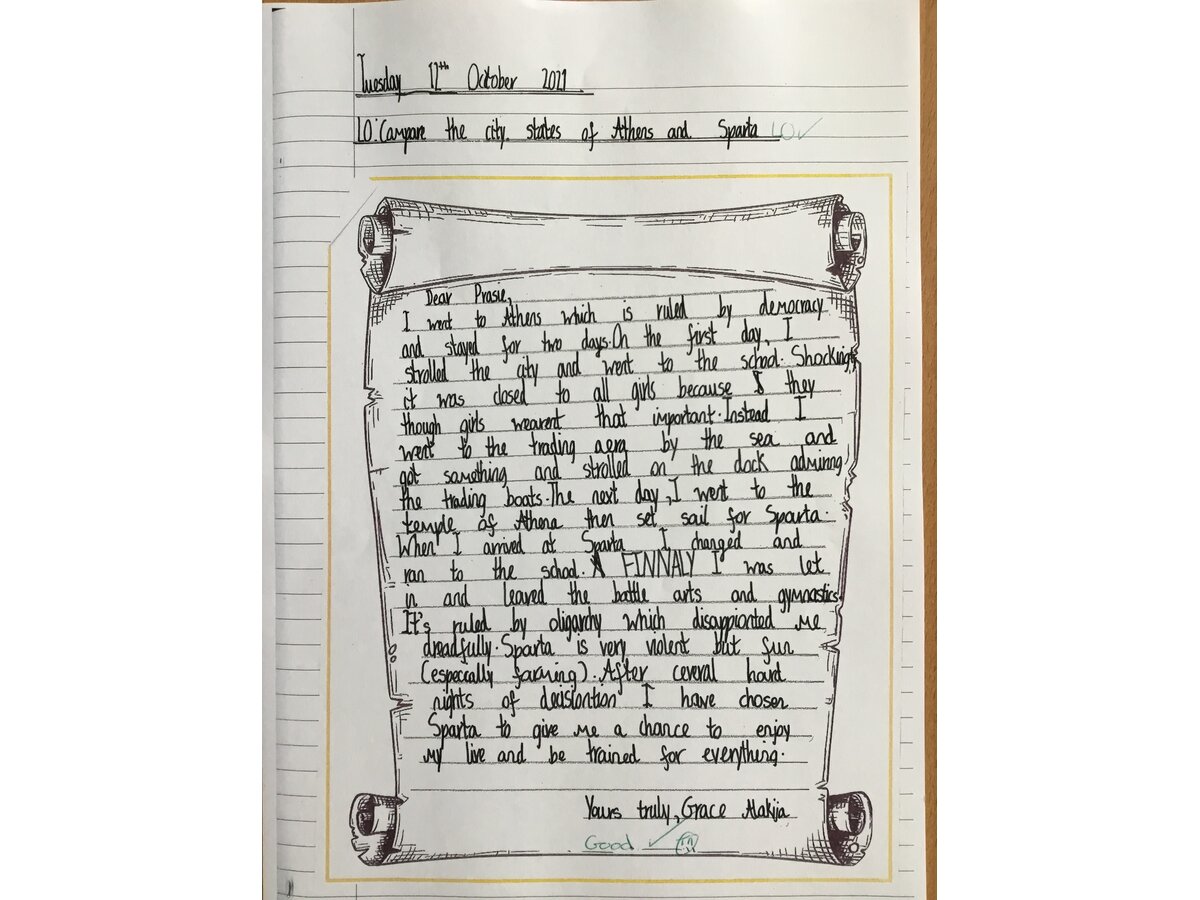 Tuesday 12th October 2021
LO: Campare the city states of Athens and Sparta LO ✓
Dear Prasie,
I went to Athens which is ruled by democracy
and stayed for two days. On the first day, I
strolled the city and went to the school. Shocking
it was closed to all girls because they
though girls wearent that important. Instead I
went to the trading aera by the sea and
got something and strolled on the dock admiring
the trading boats. The next day, I went to the
temple of Athena then set sail for Sparta.
When I arrived at Sparta I changed and
ran to the school. FINNALY I was let
in and leaved the battle arts and gymnastics.
It's ruled by oligarchy which disappionted me
dreadfully. Sparta is very violent but fun
(especcally farming). After ceveral hard
nights of decisiontion I have chosen
Sparta to give me a chance to enjoy
my live and be trained for everything.
Yours truly, Grace Alakija
Good ✓